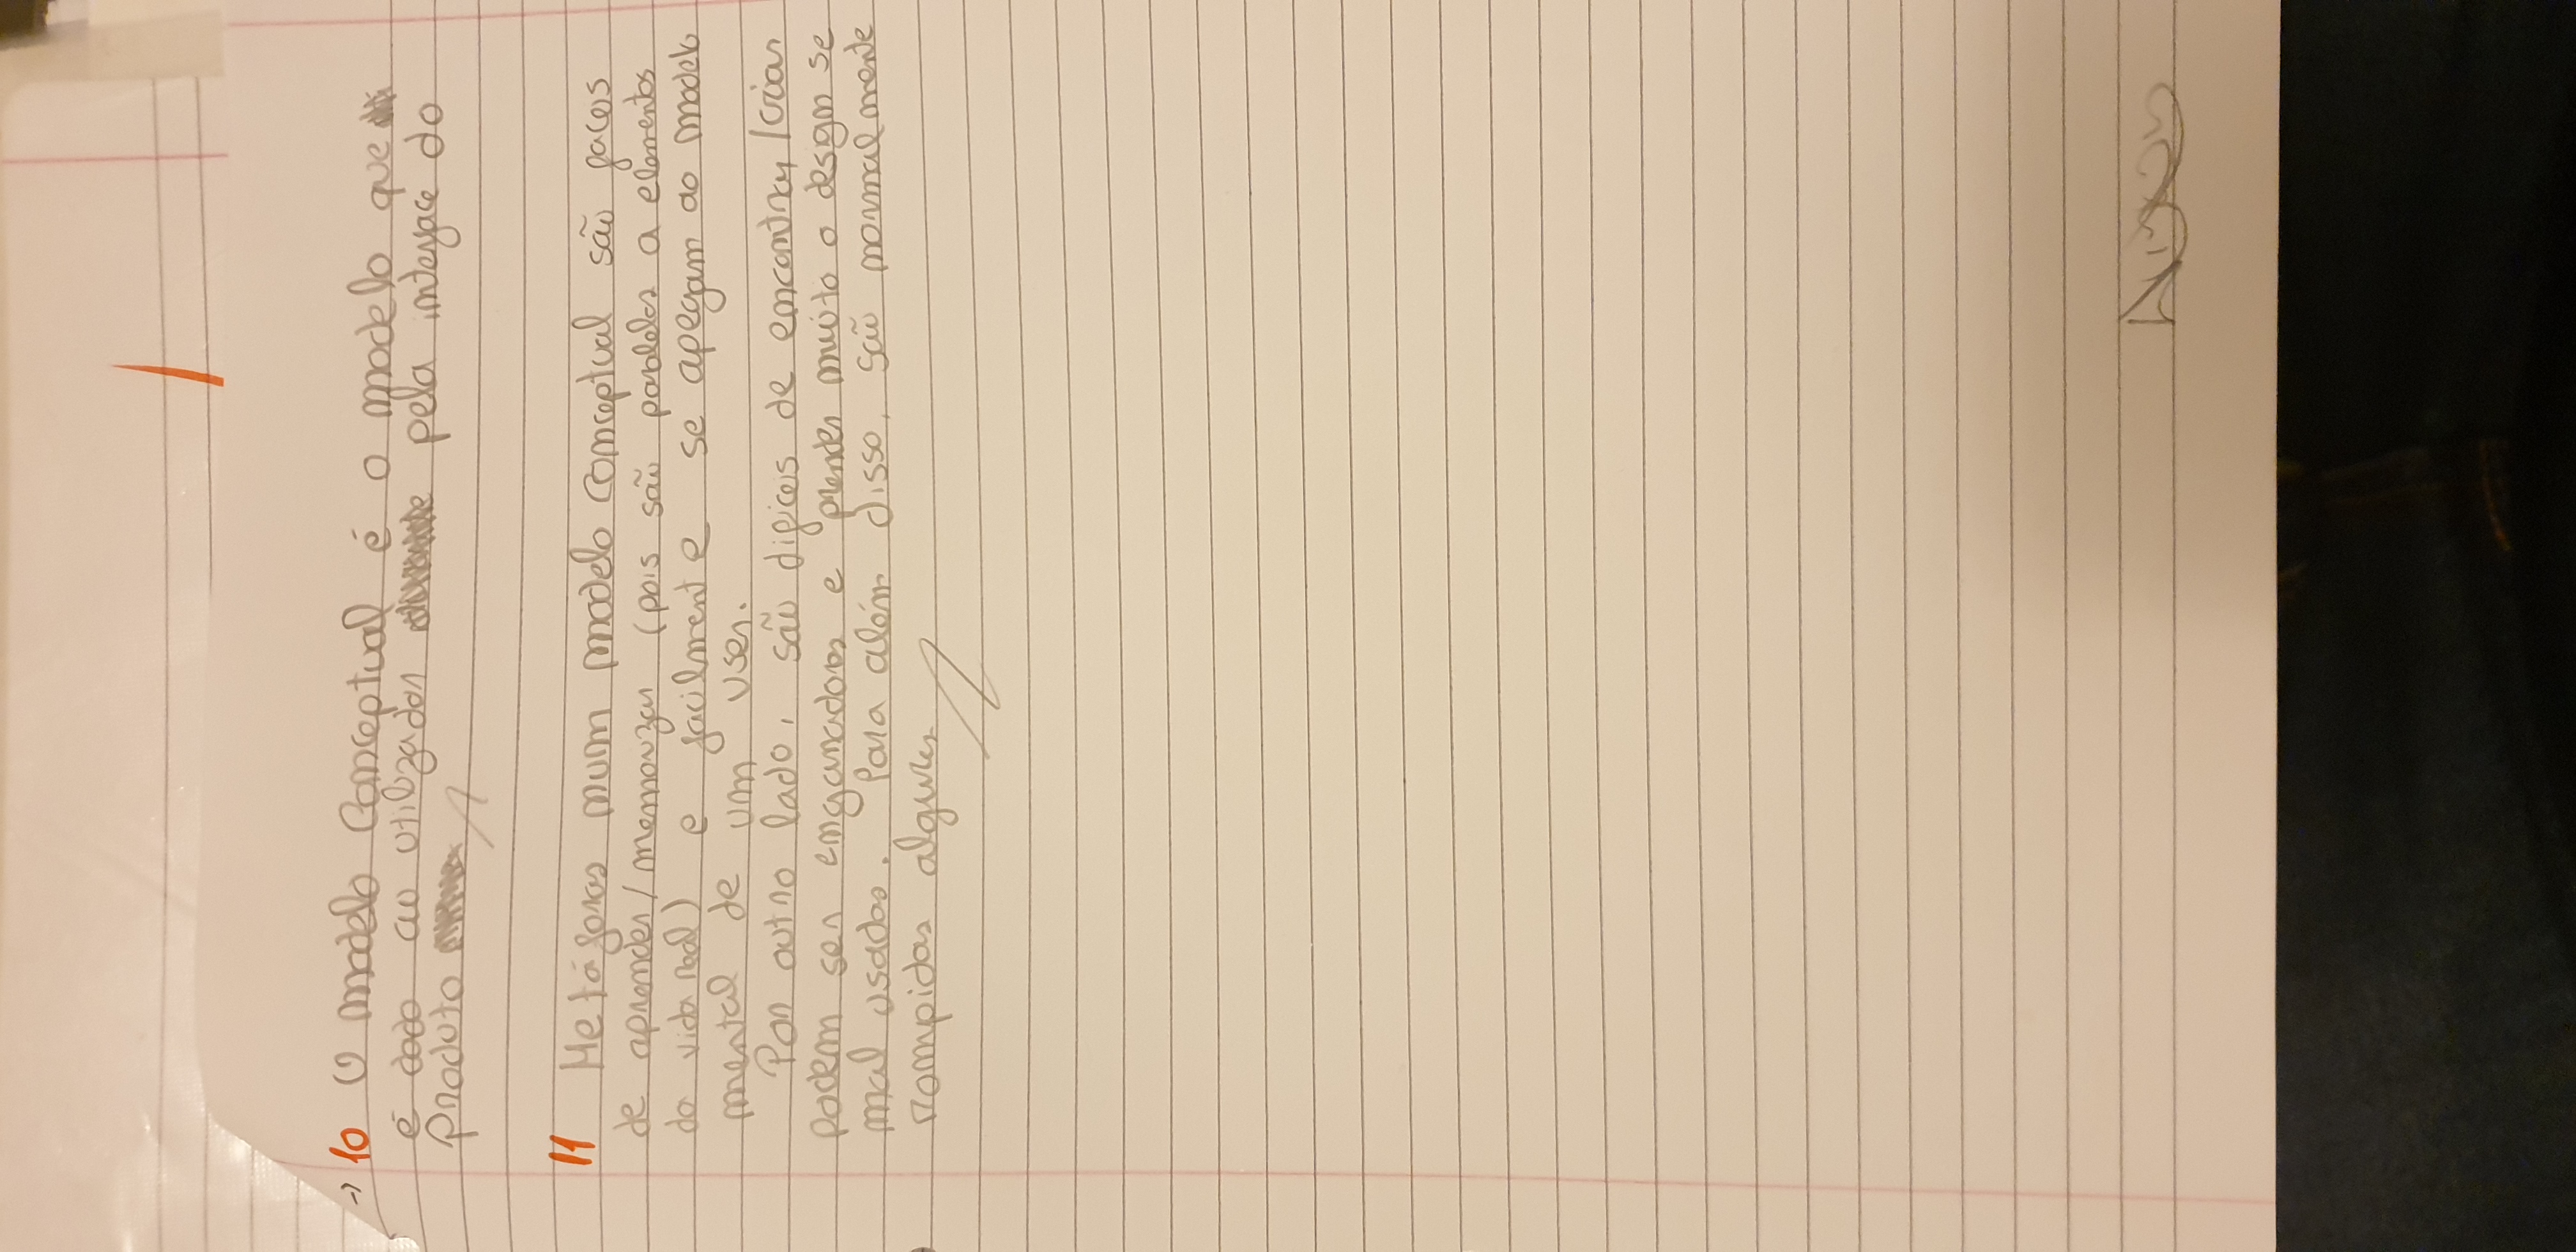 → 10 O modelo Conceptual é o modelo que
é dado ao utilizador pela interface do
Produto
11 Metáforas num modelo conceptual são faceis
de aprender/memorizar (pois são paralelas a elementos
da vida real) e facilmente se apegam ao modelo
mental de um user.
Por outro lado, são dificeis de encontrar/criar
podem ser enganadoras e prender muito o design se
mal usadas. Para além disso, são normalmente
rompidas algures